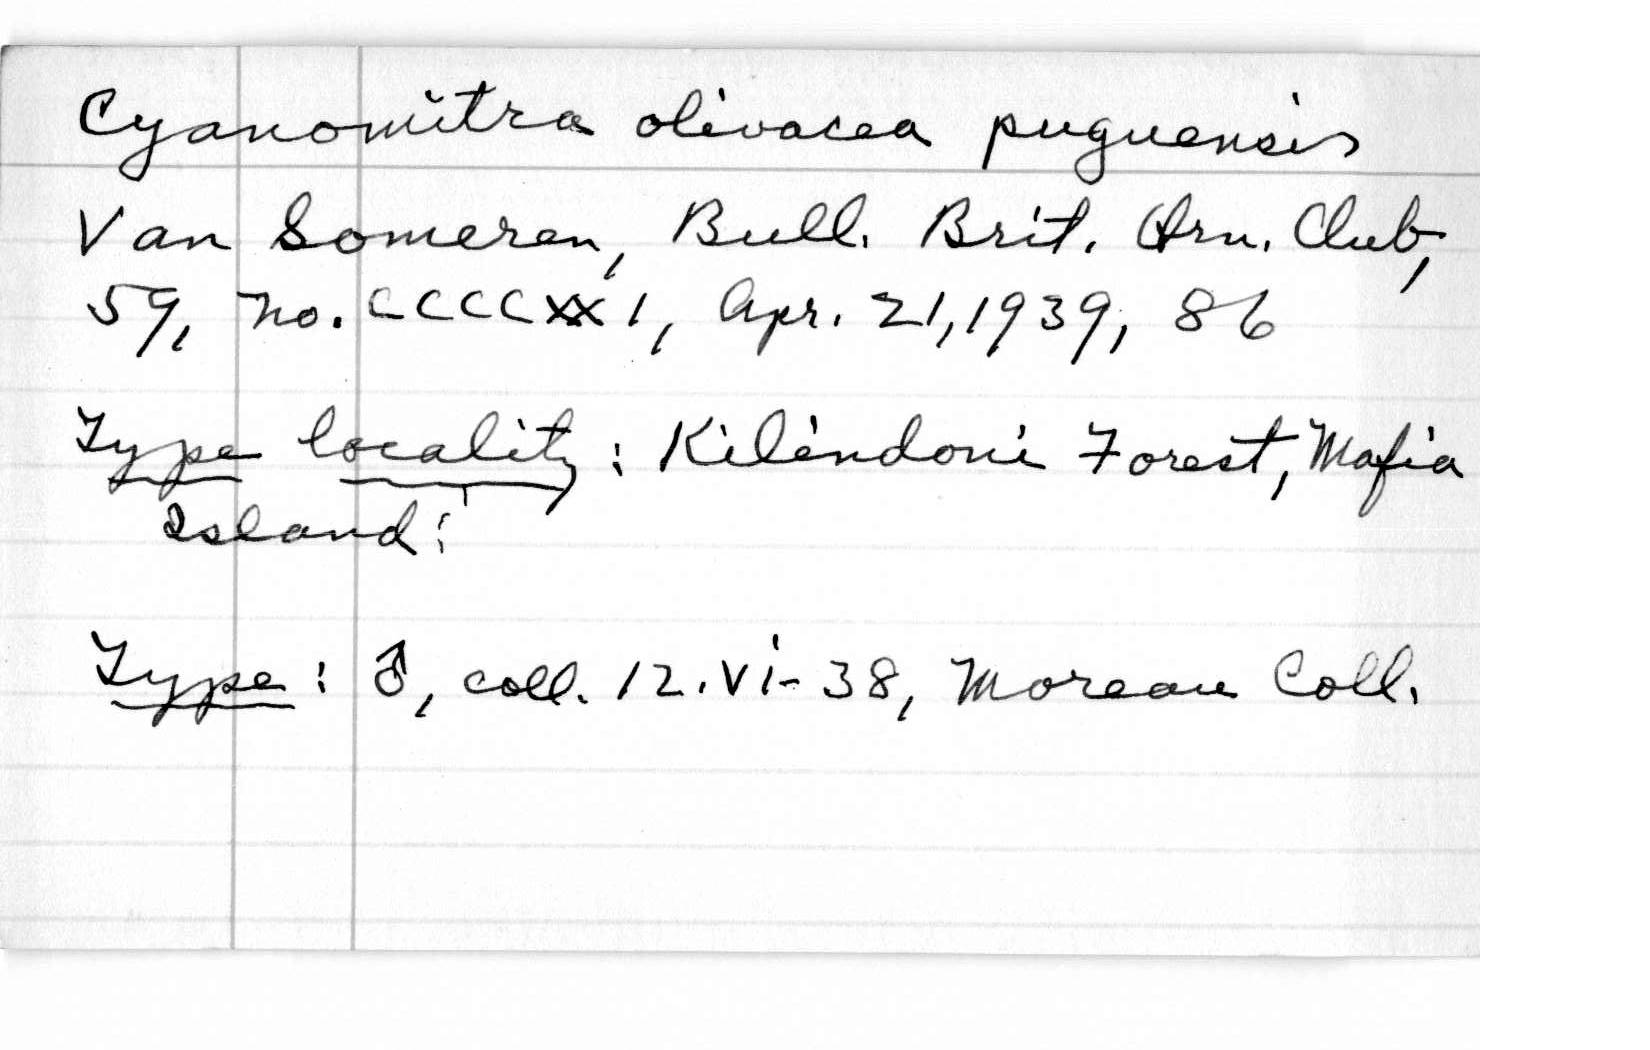 Cyanomitra olivacea puguensis
Van Someren, Bull. Brit. Orn. Club,
59, no. CCCCXXI, Apr. 21, 1939, 86
Type locality: Kilindoni Forest, Mafia
Island:
Type: ♂, coll. 12.Vi-38, Moreau Coll.